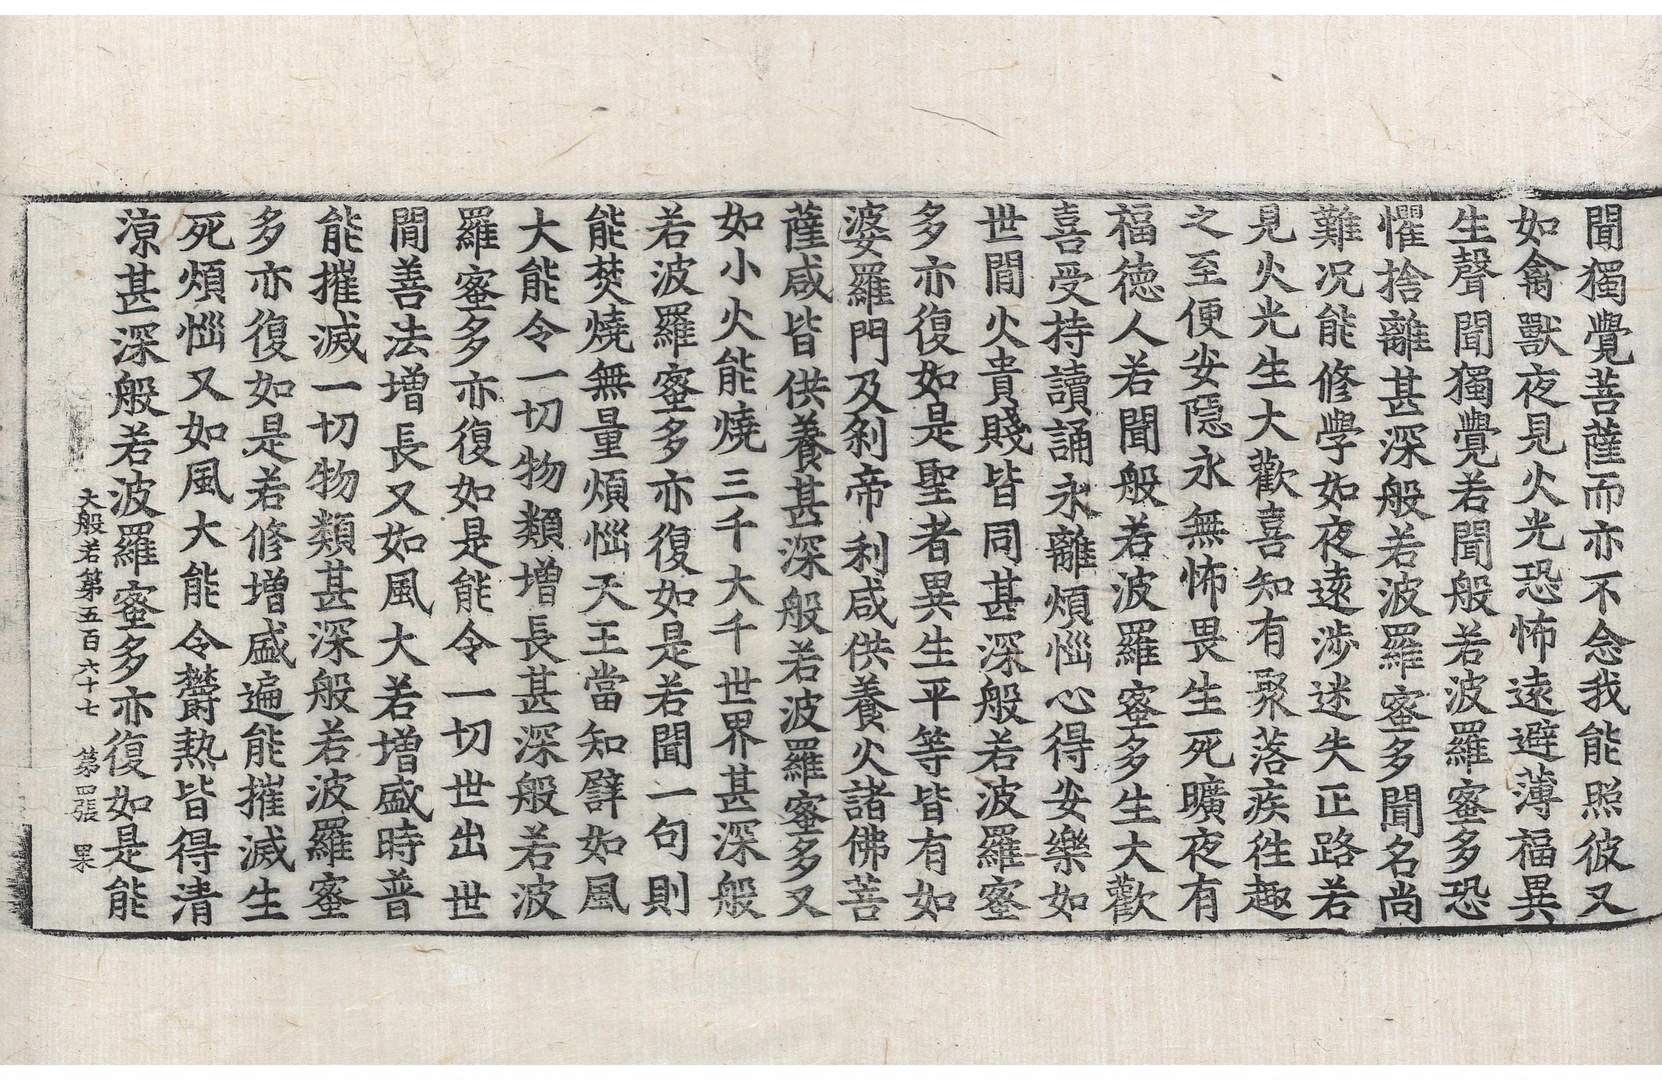 聞獨覺菩薩而亦不念我能照彼又
如禽獸夜見火光恐怖遠避薄福異
生聲聞獨覺若聞般若波羅蜜多恐
懼捨離甚深般若波羅蜜多聞名尚
難況能修學如夜遠涉迷失正路若
見火光生大歡喜知有聚落疾往趣
之至便安隱永無怖畏生死曠夜有
福德人若聞般若波羅蜜多生大歡
喜受持讀誦永離煩惱心得安樂如
世間火貴賤皆同甚深般若波羅蜜
多亦復如是聖者異生平等皆有如
婆羅門及刹帝利咸供養火諸佛菩
薩咸皆供養甚深般若波羅蜜多又
如小火能燒三千大千世界甚深般
若波羅蜜多亦復如是若聞一句則
能焚燒無量煩惱天王當知譬如風
大能令一切物類增長甚深般若波
羅蜜多亦復如是能令一切世出世
間善法增長又如風大若增盛時普
能摧滅一切物類甚深般若波羅蜜
多亦復如是若修增盛遍能摧滅生
死煩惱又如風大能令鬱熱皆得清
涼甚深般若波羅蜜多亦復如是能
大般若第五百六十七 第四張 果